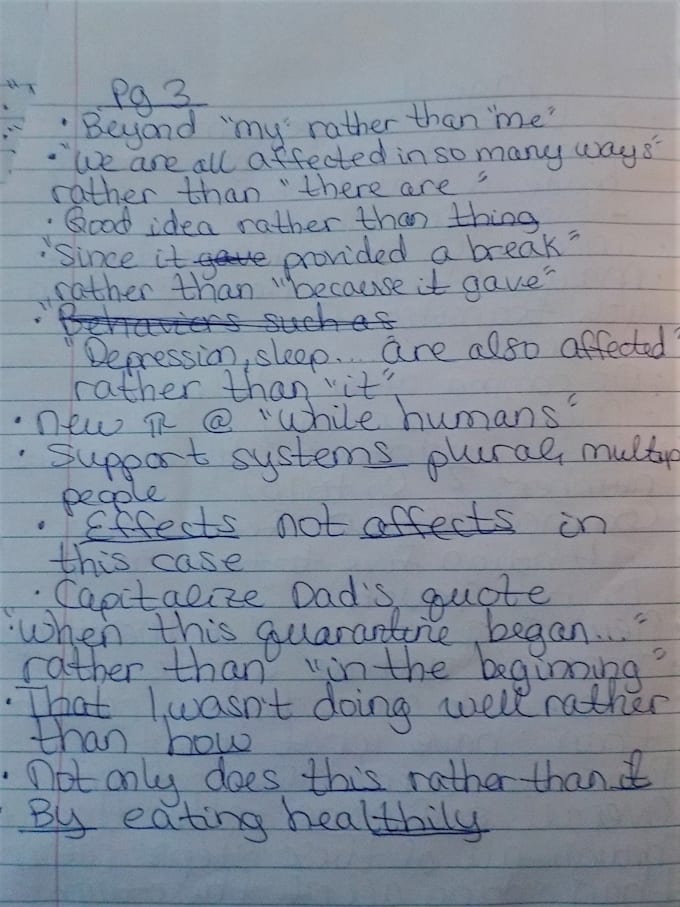 Pg 3
• Beyond "my" rather than "me"
• "We are all affected in so many ways"
rather than "there are"
• Good idea rather than thing
• "Since it gave provided a break"
rather than "because it gave"
• "Behaviors such as
"Depression, sleep... are also affected"
rather than "it"
• new ¶ @ "While humans"
• Support systems plural, multip
people
• Effects not affects in
this case
• Capitalize Dad's quote
• "When this quarantine began..."
rather than "in the beginning"
• That I wasn't doing well rather
than how
• Not only does this rather than it
By eating healthily